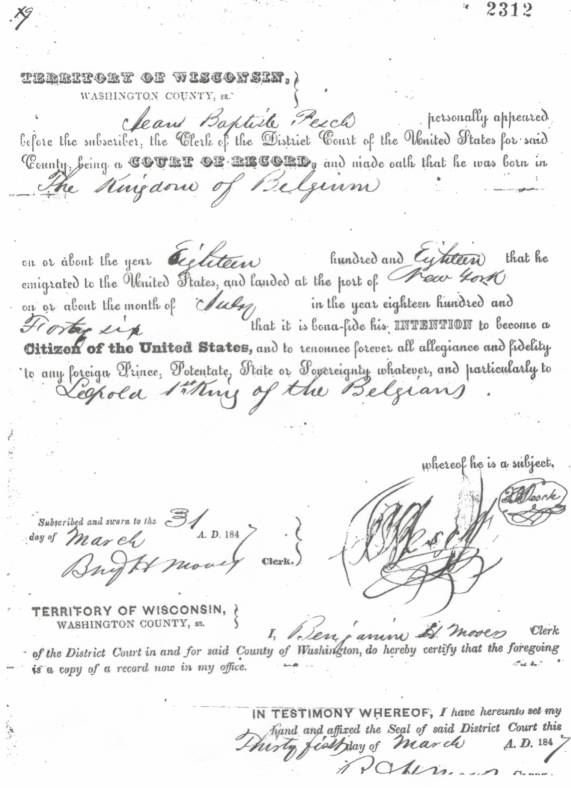 2312
TERRITORY OF WISCONSIN,
WASHINGTON COUNTY, ss.
Jean Baptiste Pesch personally appeared
before the subscriber, the Clerk of the District Court of the United States for said
County, being a COURT OF RECORD, and made oath that he was born in
The Kingdom of Belgium
on or about the year Eighteen hundred and Eighteen that he
emigrated to the United States, and landed at the port of New York
on or about the month of July in the year eighteen hundred and
Forty six that it is bona-fide his INTENTION to become a
Citizen of the United States, and to renounce forever all allegiance and fidelity
to any foreign Prince, Potentate, State or Sovereignty whatever, and particularly to
Leopold 1st King of the Belgians.
whereof he is a subject.
Subscribed and sworn to the 31
day of March A. D. 1847
Benj H Moores Clerk.
TERRITORY OF WISCONSIN,
WASHINGTON COUNTY, ss.
I, Benjamine H Moores Clerk
of the District Court in and for said County of Washington, do hereby certify that the foregoing
is a copy of a record now in my office.
IN TESTIMONY WHEREOF, I have hereunto set my
hand and affixed the Seal of said District Court this
Thirty first day of March A. D. 1847